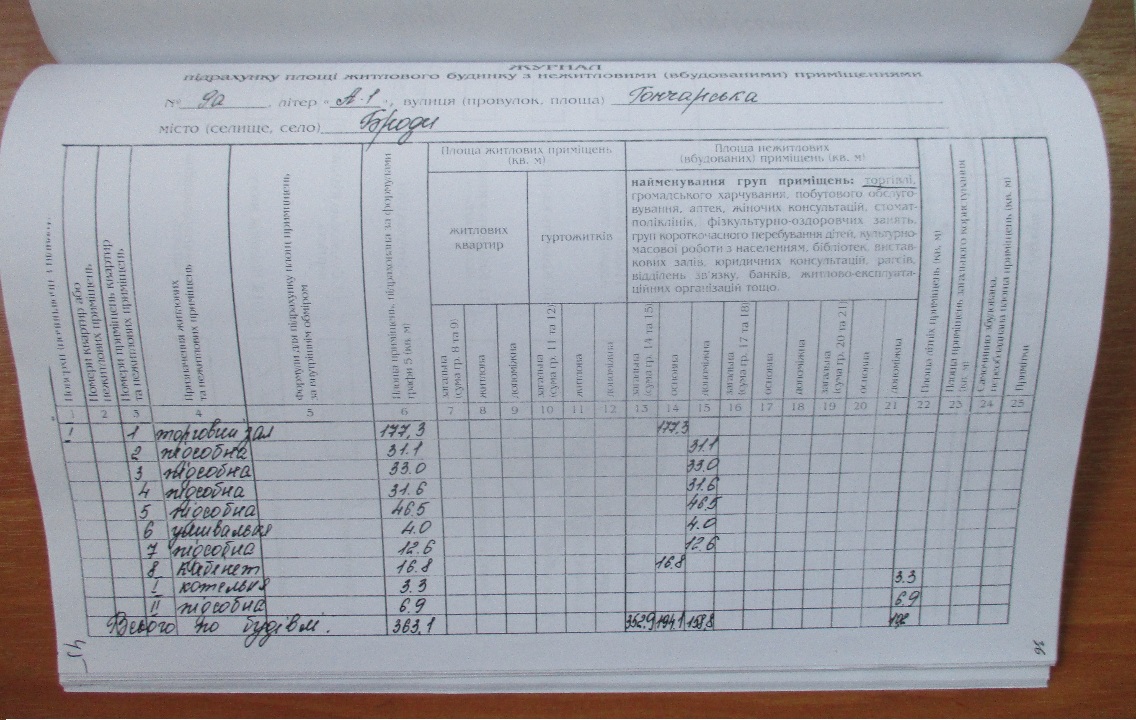 ЖУРНАЛ
підрахунку площі житлового будинку з нежитловими (вбудованими) приміщеннями
№ 9а, літер "А-1", вулиця (провулок, площа) Гончарська
місто (селище, село) Броди
Номери квартир або нежитлових приміщень
Номери приміщень квартир та нежитлових приміщень
Призначення житлових та нежитлових приміщень
Формули для підрахунку площ приміщень за внутрішнім обміром
Площа приміщень, підрахована за формулами графи 5 (кв. м)
Площа житлових приміщень (кв. м)
житлових квартир
гуртожитків
Площа нежитлових (вбудованих) приміщень (кв. м)
найменування груп приміщень: торгівлі,
громадського харчування, побутового обслуго-
вування, аптек, жіночих консультацій, стомат-
поліклінік, фізкультурно-оздоровчих занять,
груп короткочасного перебування дітей, культурно-
масової роботи з населенням, бібліотек, вистав-
кових залів, юридичних консультацій, рагсів,
відділень зв'язку, банків, житлово-експлуата-
ційних організацій тощо.
загальна (сума гр. 8 та 9)
житлова
допоміжна
загальна (сума гр. 11 та 12)
житлова
допоміжна
загальна (сума гр. 14 та 15)
основна
допоміжна
загальна (сума гр. 17 та 18)
основна
допоміжна
загальна (сума гр. 20 та 21)
основна
допоміжна
Площа літніх приміщень (кв. м)
Площа приміщень загального користування (кв. м)
Самочинно збудована, переобладнана площа приміщень (кв. м)
Примітки
1 2 3 4 5 6 7 8 9 10 11 12 13 14 15 16 17 18 19 20 21 22 23 24 25
I 1 торговий зал 177,3 177.3
2 підсобна 31.1 31.1
3 підсобна 33.0 33.0
4 підсобна 31.6 31.6
5 підсобна 46.5 46.5
6 умивальня 4.0 4.0
7 підсобна 12.6 12.6
8 кабінет 16.8 16.8
I котельня 3.3 3.3
II підсобна 6.9 6.9
Всього по будівлі. 363.1 352.9 194.1 158.8